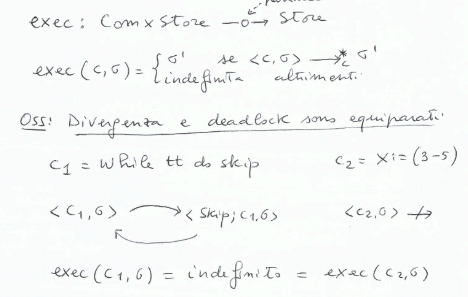 exec : Com x Store —o→ Store
exec (c, σ) = { σ' se <c, σ> →*c σ'
indefinita altrimenti
Oss: Divergenza e deadlock sono equiparati.
c1 = While tt do skip c2 = X := (3-5)
<c1, σ> → < skip; c1, σ> <c2, σ> ↛
exec (c1, σ) = indefinito = exec (c2, σ)